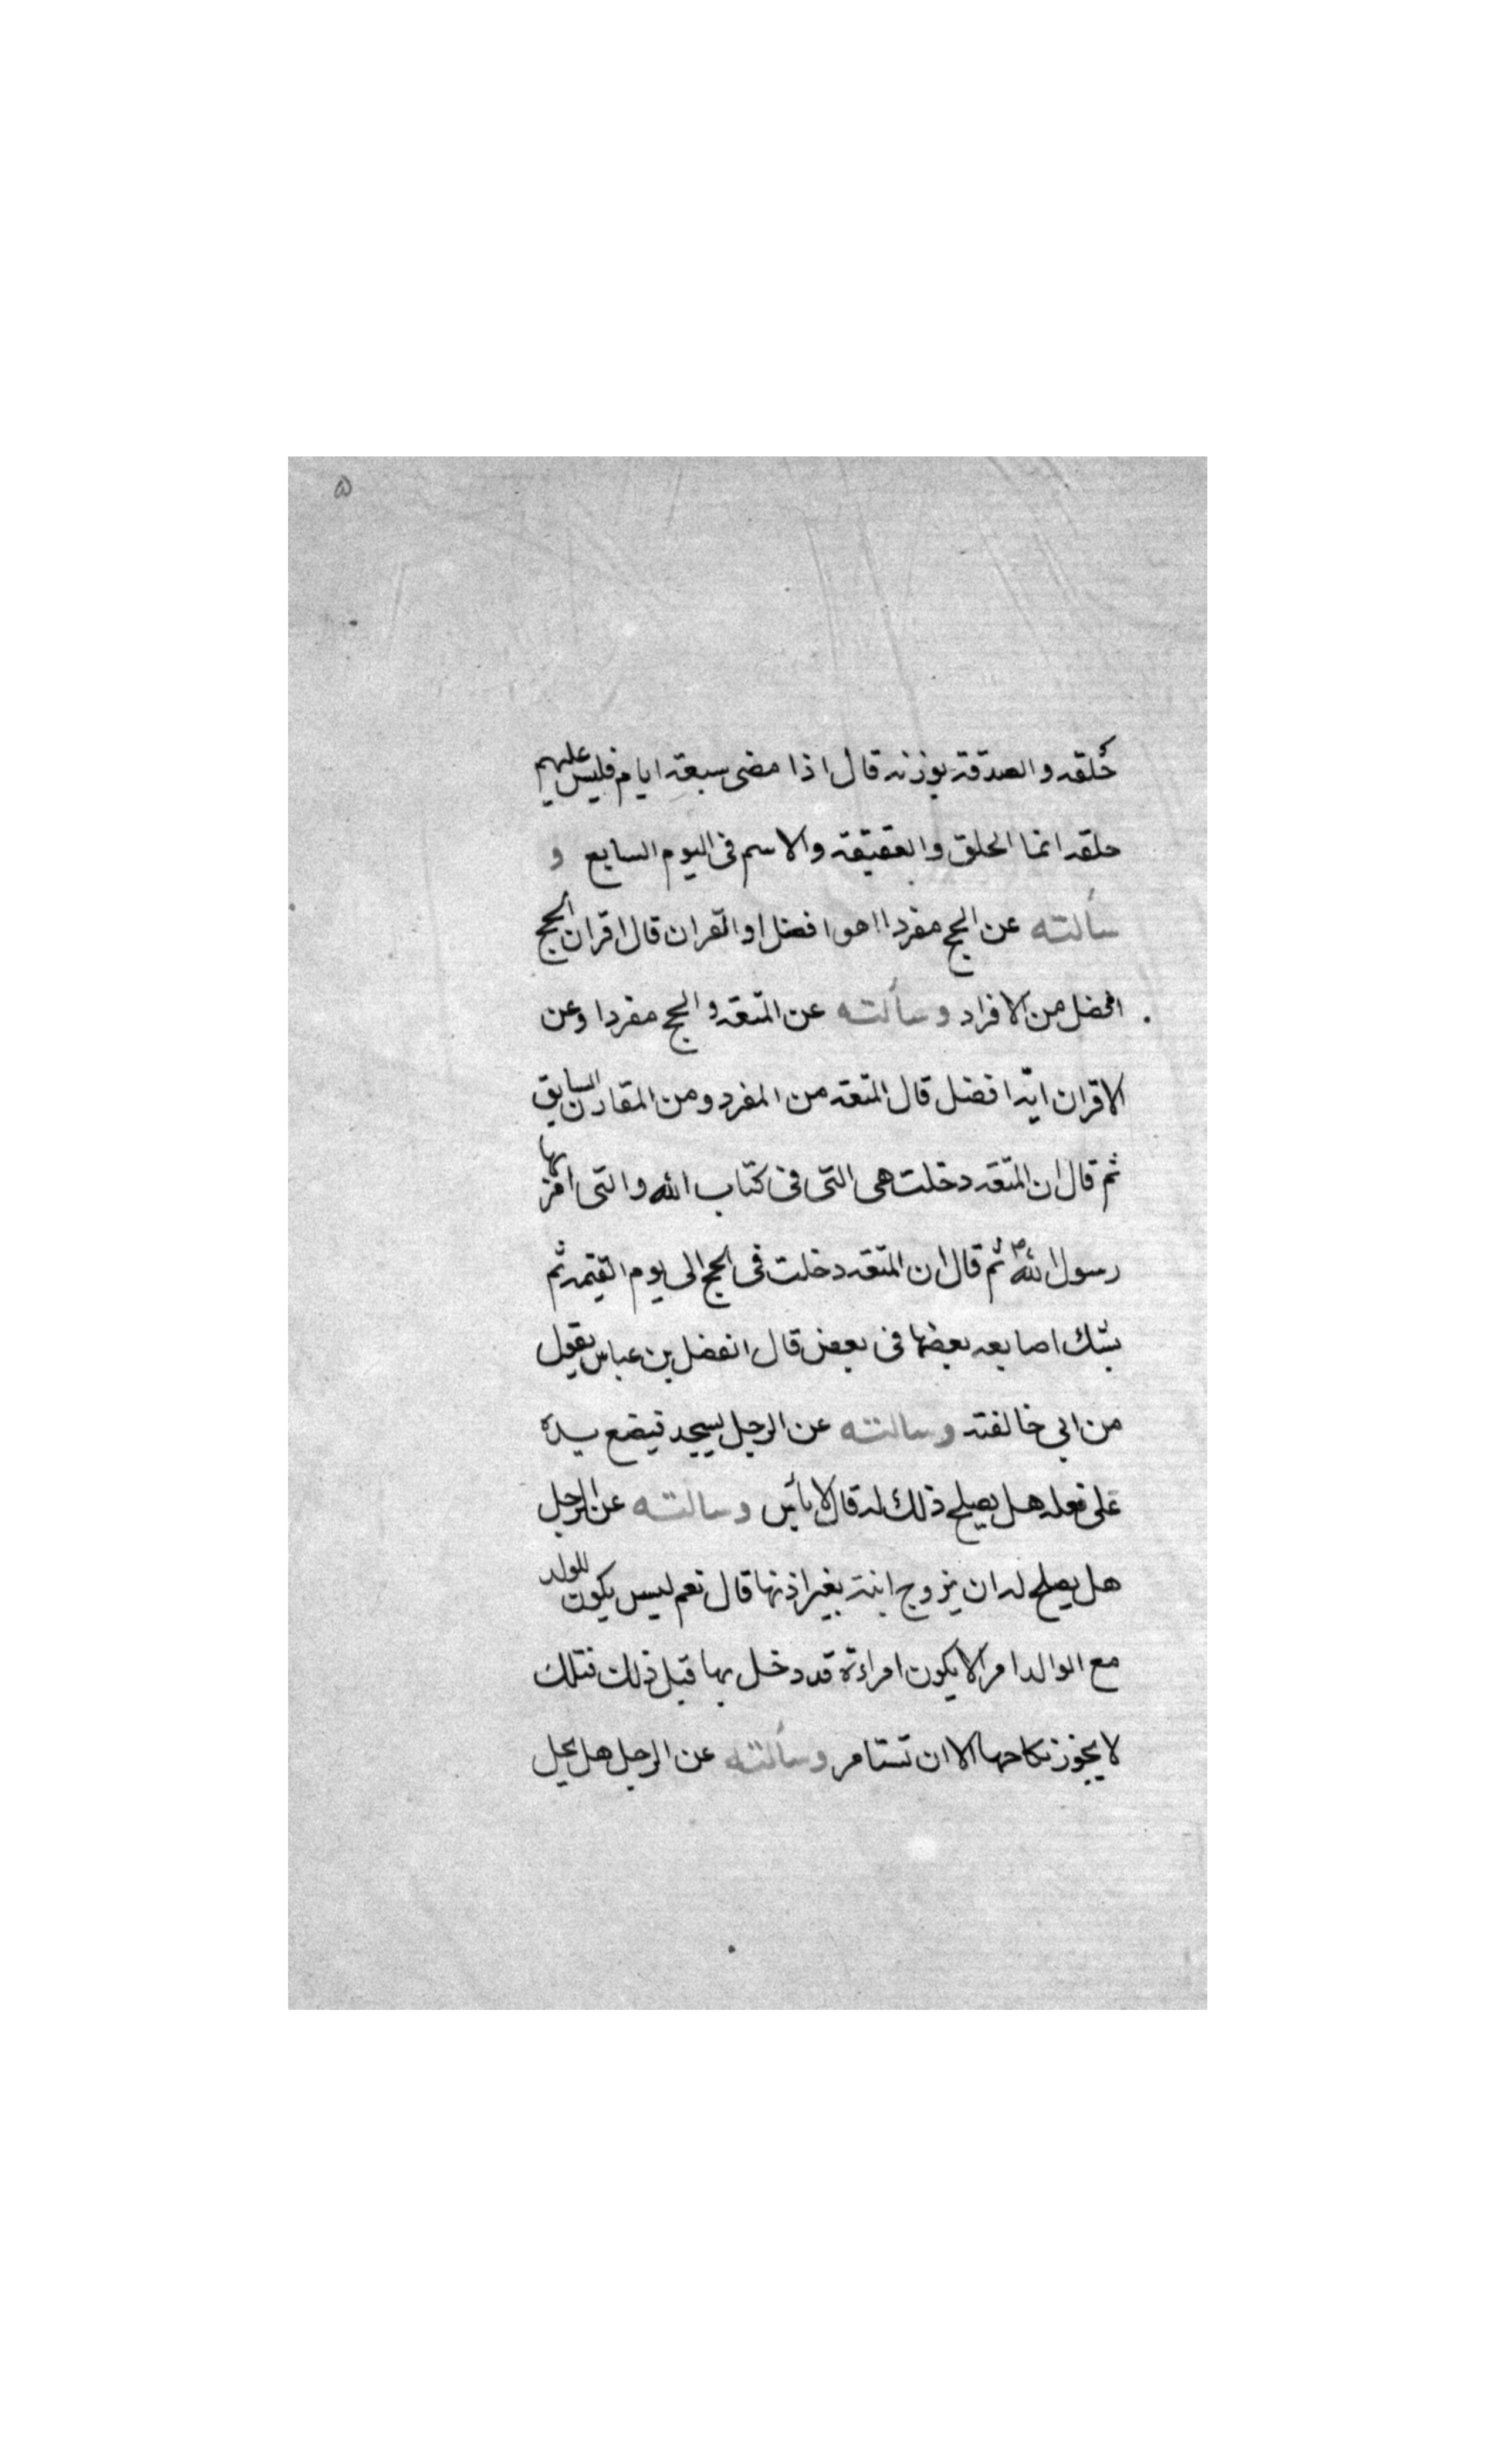 ۵
حلقه والصدقة بوزنه قال اذا مضى سبعة ايام فليس عليهم
حلقه انما الحلق والعقيقه والاسم فى اليوم السابع و
سألته عن الحج مفردا اهو افضل او القران قال اقران الحج
افضل من الافراد وسألته عن المتعه والحج مفردا وعن
الاقران ايّه افضل قال المتعه من المفرد ومن المقارن السايق
ثم قال ان المتعه دخلت هى التى فى كتاب الله والتى امر بها
رسول الله ص ثم قال ان المتعه دخلت فى الحج الى يوم القيمه ثم
شبك اصابعه بعضها فى بعض قال الفضل بن عباس يقول
من ابى خالفته وسالته عن الرجل يسجد فيضع يده
على نعله هل يصلح ذلك له قال لا بأس وسالته عن الرجل
هل يصلح له ان يزوج ابنته بغير اذنها قال نعم ليس يكون للولد
مع الوالد امر الا يكون امراءة قد دخل بها قبل ذلك فتلك
لا يجوز نكاحها الا ان تستامر وسألته عن الرجل هل يحل